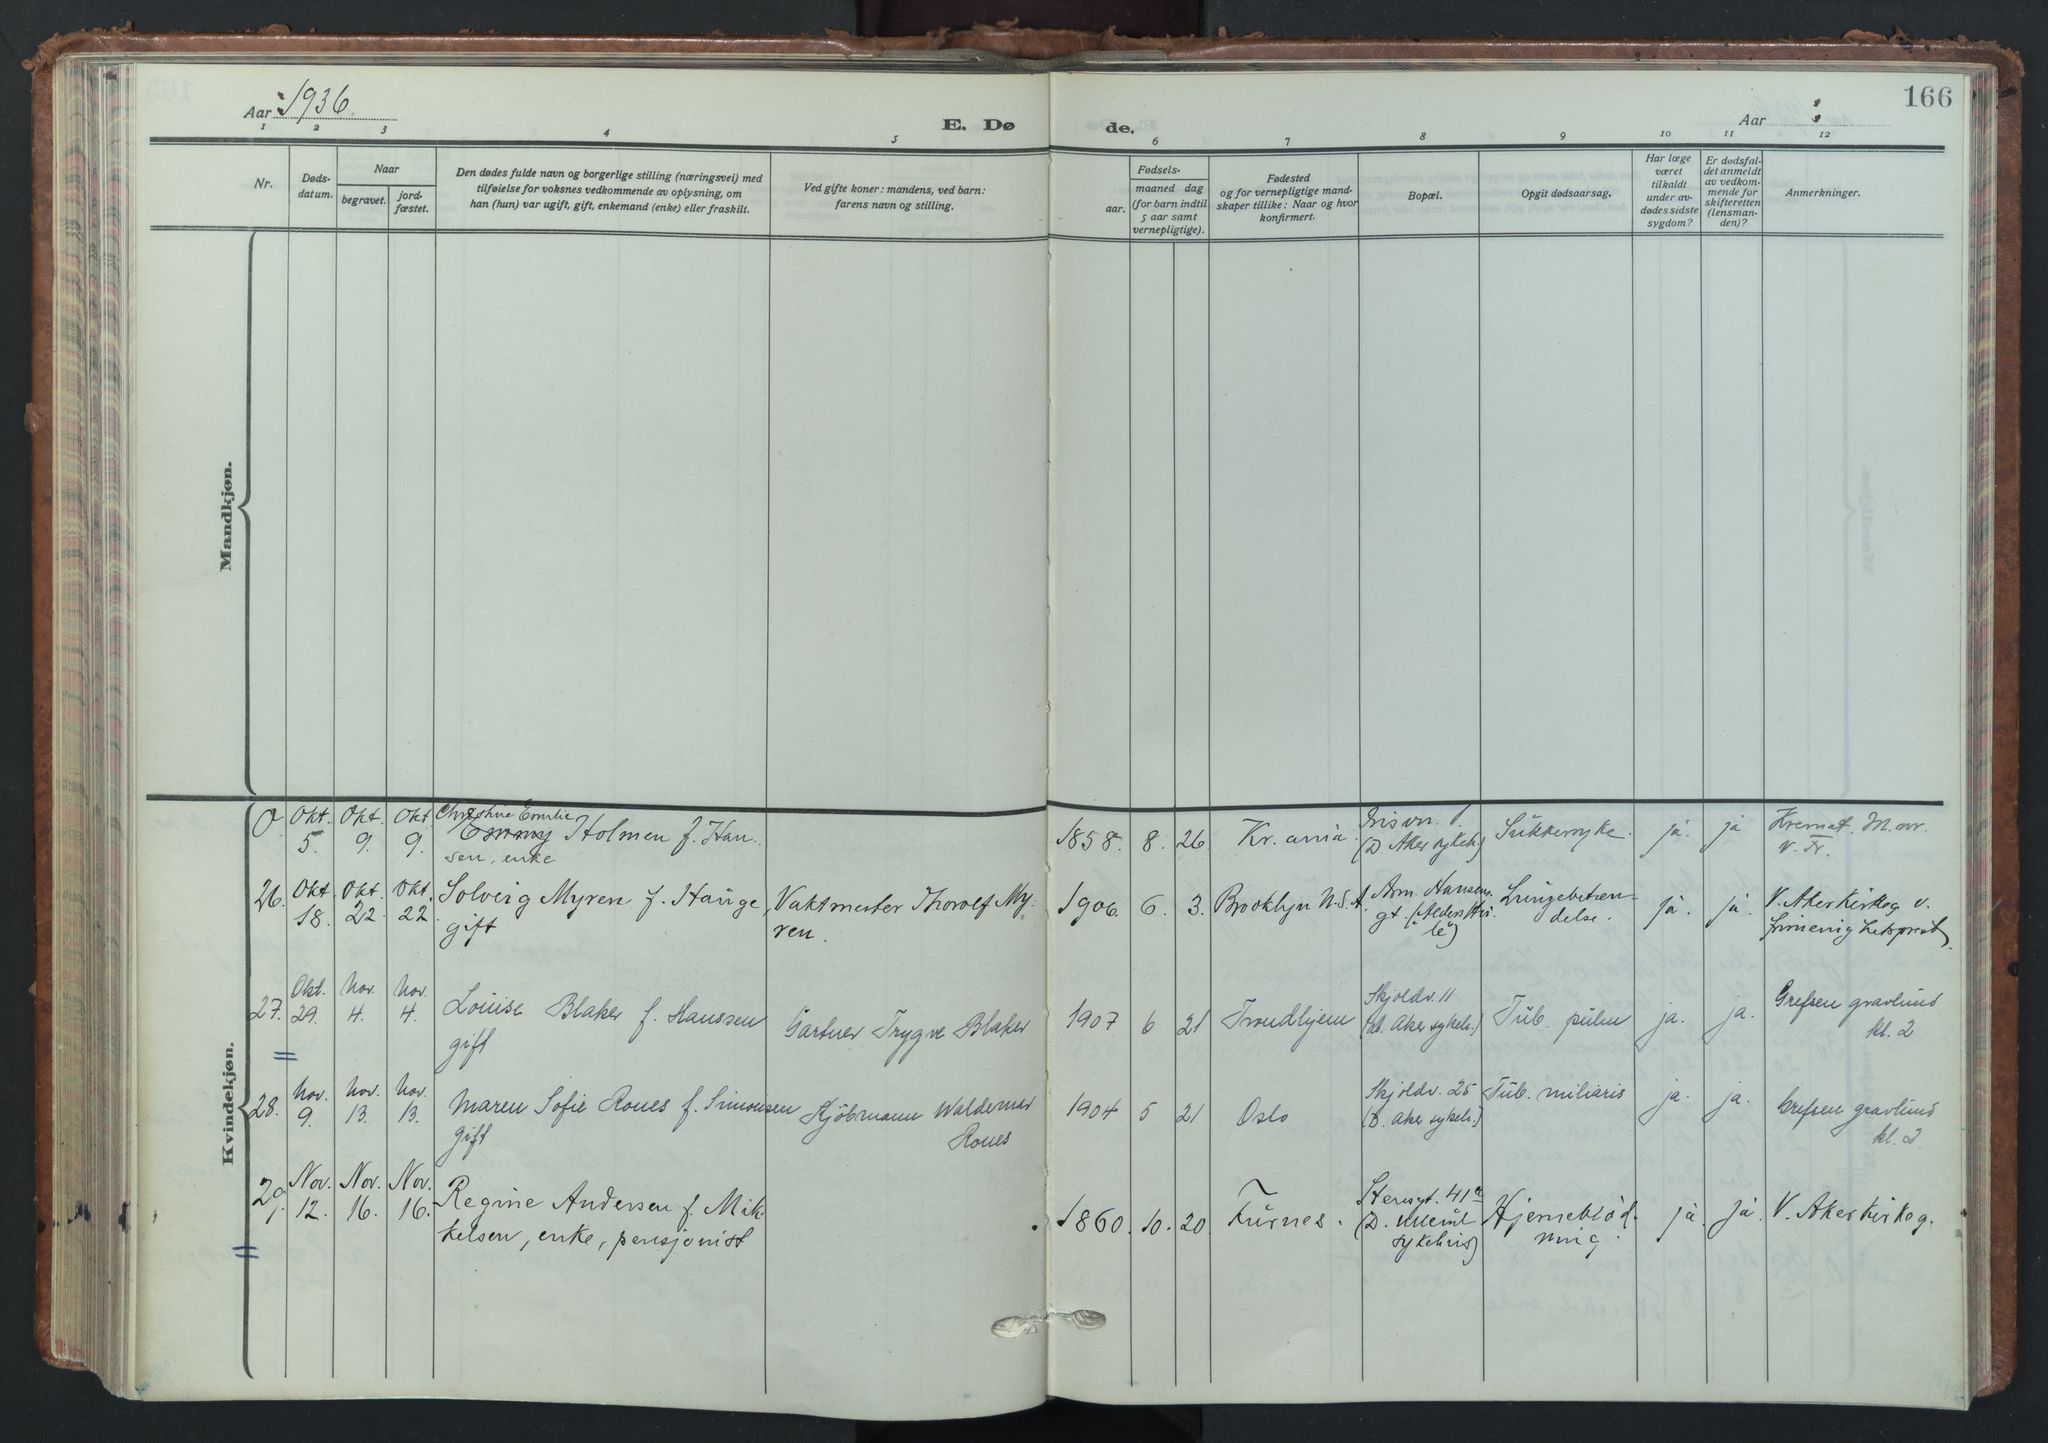 Aar 1936.
E. Døde.
Aar
166
1 2 3 4 5 6 7 8 9 10 11 12
Nr.
Døds-
datum.
Naar
begravet.
jord-
fæstet.
Den dødes fulde navn og borgerlige stilling (næringsvei) med
tilføielse for voksnes vedkommende av oplysning, om
han (hun) var ugift, gift, enkemand (enke) eller fraskilt.
Ved gifte koner: mandens, ved barn:
farens navn og stilling.
Fødsels-
aar.
maaned dag
(for barn indtil
5 aar samt
vernepligtige).
Fødested
og for vernepligtige mand-
skaper tillike: Naar og hvor
konfirmert.
Bopæl.
Opgit dødsaarsag.
Har læge
været
tilkaldt
under av-
dødes sidste
sygdom?
Er dødsfal-
det anmeldt
av vedkom-
mende for
skifteretten
(lensman-
den)?
Anmerkninger.
Mandkjøn.
Kvindekjøn.
0 Okt. 5. Okt. 9. Okt 9. Christine Emilie
Emmy Holmen f. Han-
sen, enke
1858. 8. 26. Kr.ania. (D. Aker sykeh.) Sukkersyke. ja. ja Kremat. M.nr.
V. Fr.
26. Okt 18. Okt. 22. Okt. 22. Solveig Myren f. Hauge,
gift
Vaktmester Thorolf My-
ren.
1906. 6. 3. Brooklyn N.S.A. Arn. Hansens
gt.
Lungebeten-
delse.
ja. ja. V. Aker Kirkeg. v.
27. Okt. 29. Nov. 4. Nov. 4. Louise Blaker f. Hanssen
gift
Gartner Trygve Blaker
1907 6 21 Trondhjem Skjoldv. 11
(d. Aker sykeh.)
Tub. pulm ja. ja. Grefsen gravlund
kl. 2
28. Nov. 9. Nov. 13. Nov. 13. Maren Sofie Roues f. Simonsen
gift
Kjöbmann Waldemar
Roues
1904 5 21 Oslo Skjoldv. 25
(D. Aker sykeh.)
Tub. miliaris ja. ja. Grefsen gravlund
kl. 2
29. Nov. 12. Nov. 16. Nov. 16. Regine Andersen f. Mik-
kelsen, enke, pensjonist
1860. 10. 20. Furnes. Stensgt. 41a
(D. Ullevål
sykehus)
Hjerneblöd-
ning.
ja. ja. V. Aker Kirkeg.